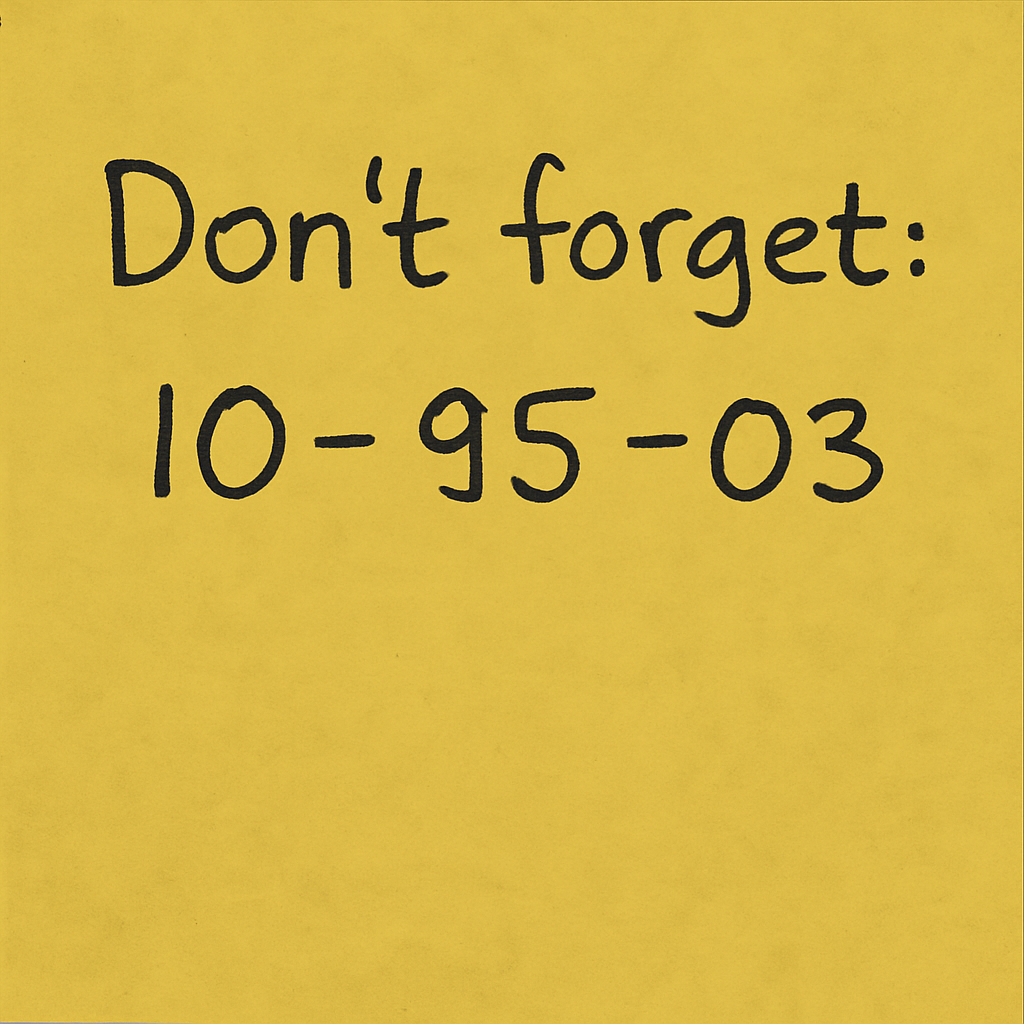 Don't forget:
10-95-03